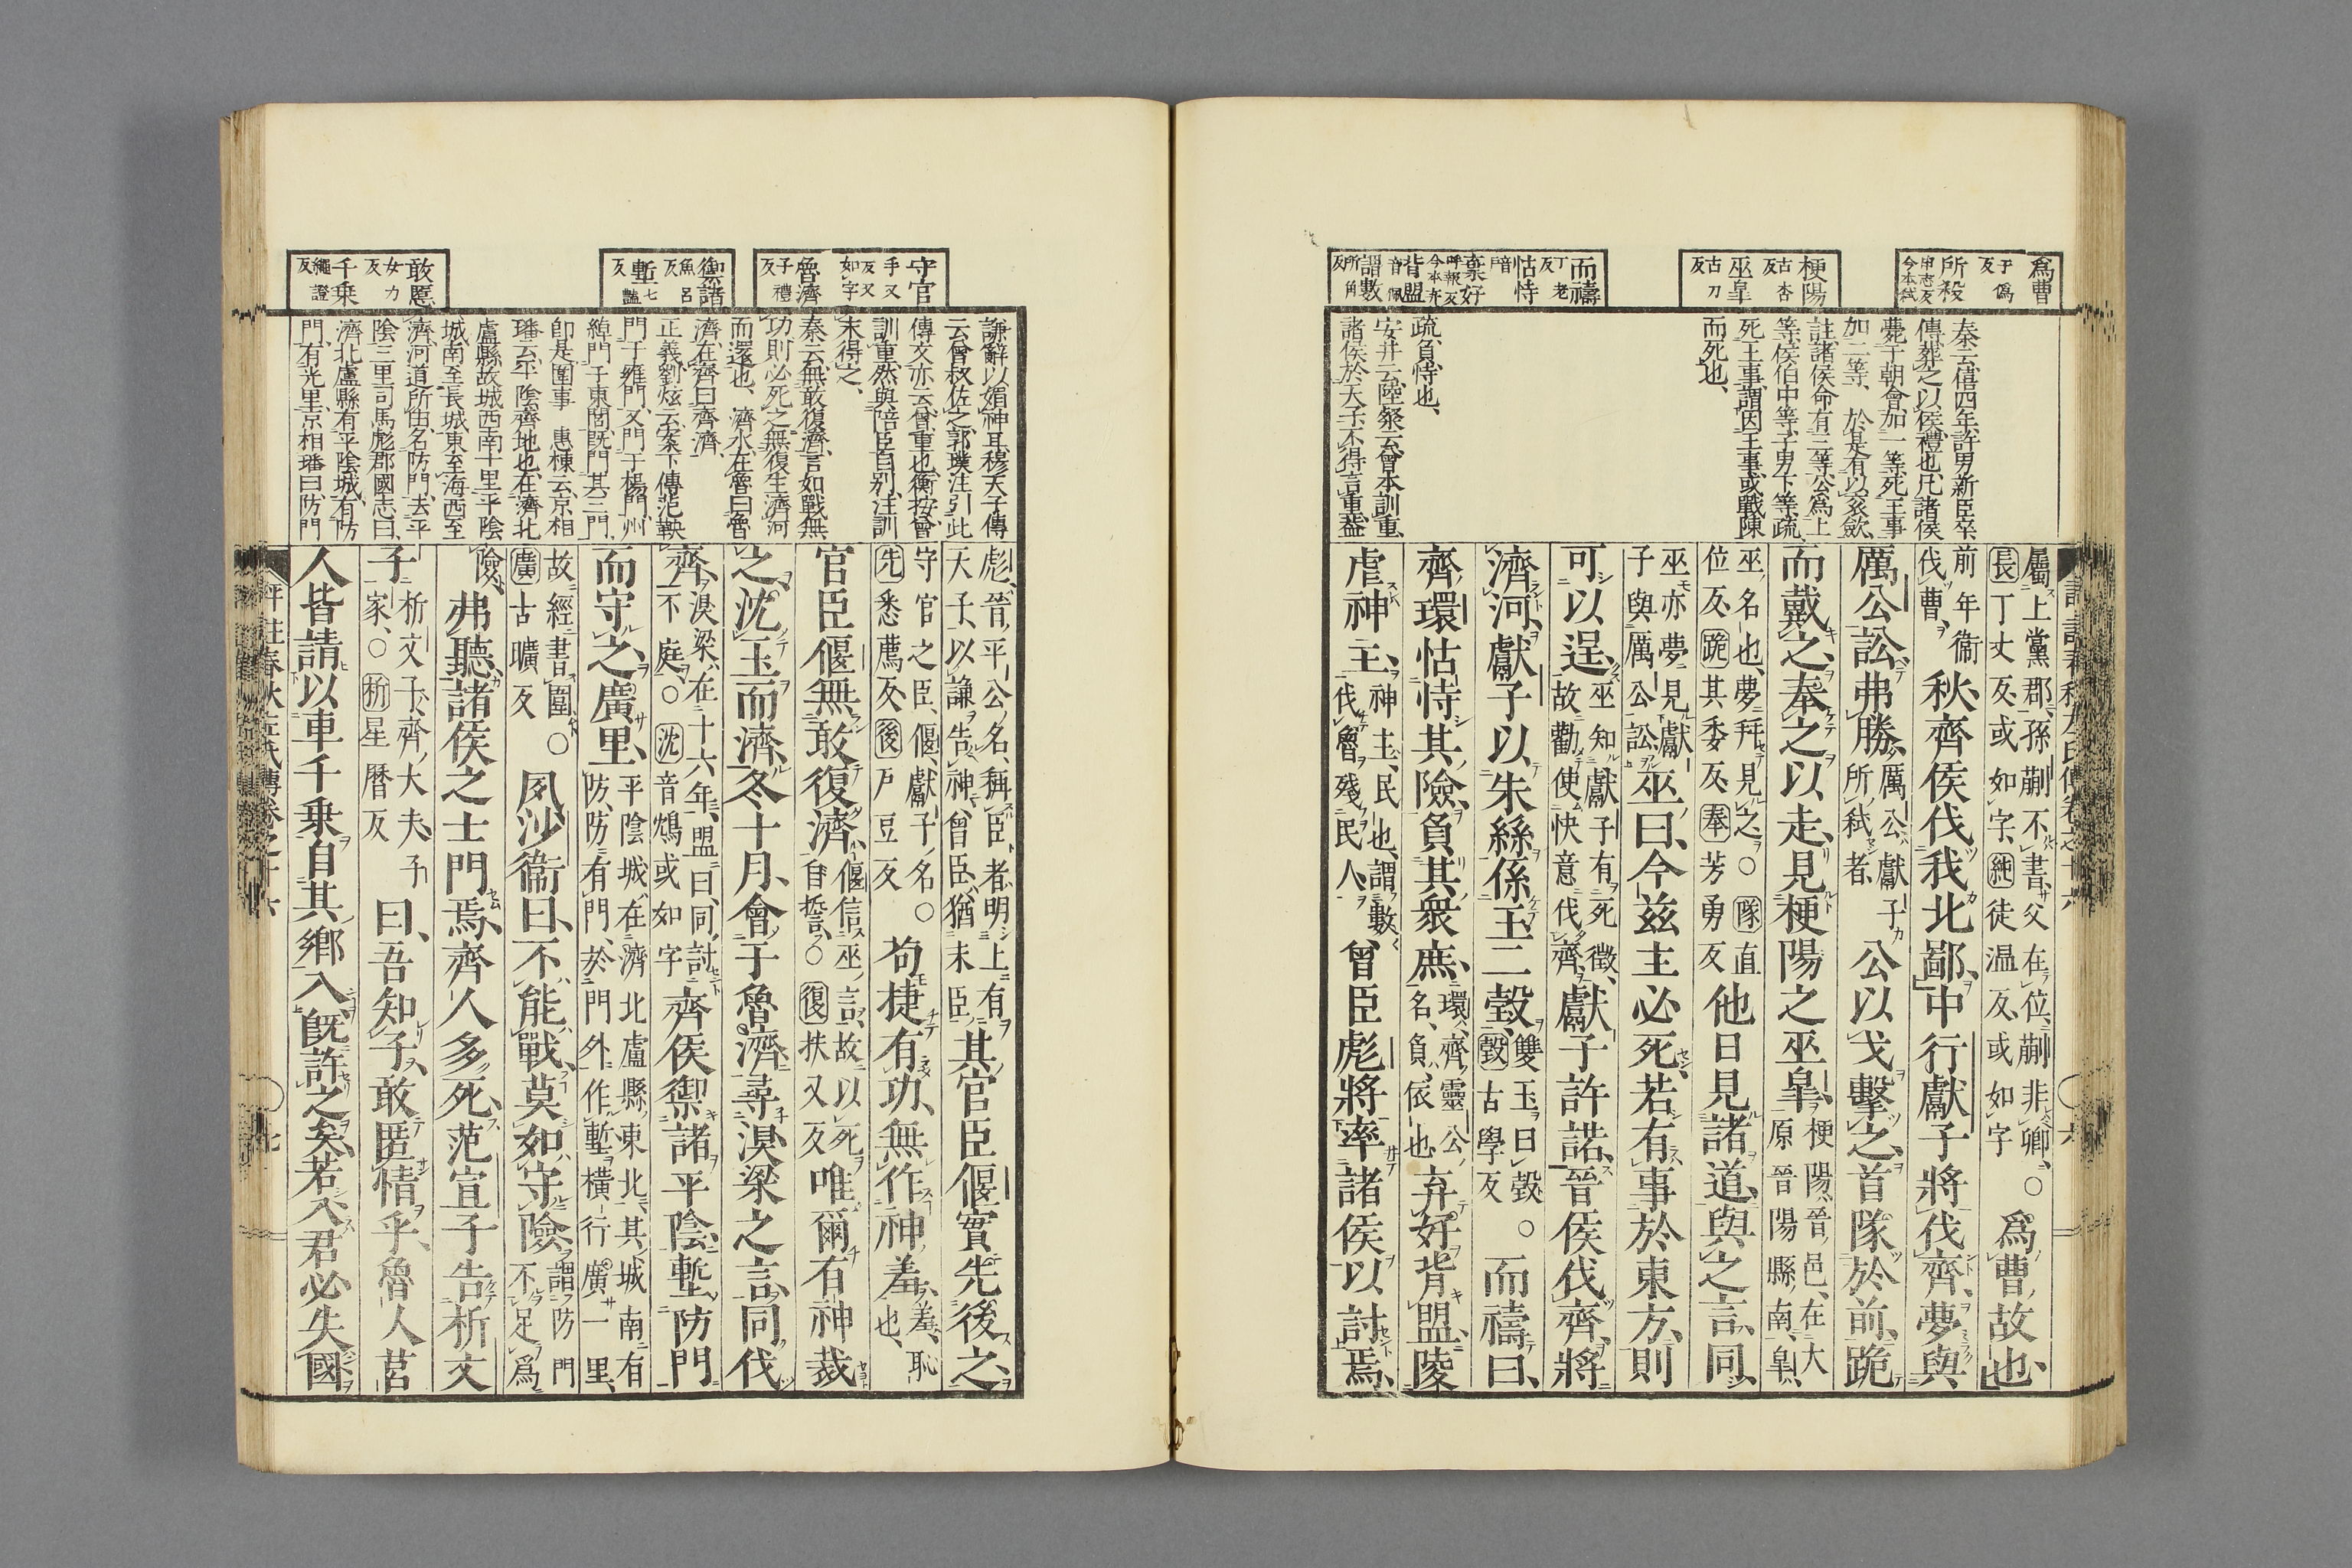 爲曹 于僞反
所殺 申志反今本弒
梗陽 古杏反
巫皐 古刀反
而禱 丁老反
怙恃 音戶
棄好 呼報反今本弃
背盟 音佩
謂數 所角反
秦云僖四年許男新臣卒
傳葬之以侯禮也凡諸侯
薨于朝會加一等死王事
加二等、於是有以袞斂、
註諸侯命有三等公爲上
等侯伯中等子男下等疏
死王事謂因王事或戰陳
而死也、
疏負恃也、
安井云陸粲云曾本訓重
諸侯於天子不得言重蓋
屬上黨郡、孫蒯不書、父在位、蒯非卿、○長丁丈反、或如字、純徒温反、或如字爲曹故也、
前年衞伐曹、秋、齊侯伐我北鄙、中行獻子將伐齊、夢與
厲公訟、弗勝、厲公、獻子所弒者、公以戈擊之、首隊於前、跪
而戴之、奉之以走、見梗陽之巫皐、梗陽、晉邑、在大原晉陽縣南、皐、
巫名也、夢拜見之○隊直位反、跪其委反、奉芳勇反他日見諸道、與之言、同、
巫亦夢見獻子與厲公訟、巫曰、今茲主必死、若有事於東方、則
可以逞、巫知獻子有死徵、故勸使快意伐齊、獻子許諾、晉侯伐齊、將
濟河、獻子以朱絲係玉二瑴、雙玉曰瑴○瑴古學反而禱曰、
齊環怙恃其險、負其衆庶、環、齊靈公名、負、依也弃好背盟、陵
虐神主、神主、民也、謂數伐魯殘民人、曾臣彪將率諸侯以討焉、
守官 手又反又如字
魯濟 子禮反
禦諸 魚呂反
塹 七豔反
敢匿 女力反
千乘 繩證反
謙辭以媚神耳穆天子傳
云曾叔佐之郭璞注引此
傳文亦云曾重也衡按曾
訓重然與陪臣自別注訓
末得之、
秦云無敢復濟言如戰無
功則必死之無復生濟河
而還也、濟水在魯曰魯
濟在齊曰齊濟、
正義劉炫云案下傳范鞅
門于雍門又門于楊門州
綽門于東閭既門其三門
卽是圍事 惠棟云京相
璠云平陰齊地也在濟北
盧縣故城西南十里平陰
城南至長城東至海西至
濟河道所由名防門去平
陰三里司馬彪郡國志曰
濟北盧縣有平陰城有防
門有光里京相璠曰防門
彪、晉平公名、稱臣者、明上有天子、以謙告神、曾臣、猶末臣、其官臣偃實先後之、
守官之臣、偃、獻子名、○先悉薦反、後戶豆反苟捷有功、無作神羞、羞、恥也、
官臣偃無敢復濟、偃信巫言、故以死自誓、○復扶又反唯爾有神裁
之、沈玉而濟、冬十月、會于魯濟、尋湨梁之言、同伐
齊、湨梁、在十六年、盟曰、同討不庭、○沈音鴆或如字齊侯禦諸平陰、塹防門
而守之廣里、平陰城、在濟北盧縣東北、其城南有防、防有門、於門外作塹橫行廣一里、
故經書圍、○廣古曠反夙沙衞曰、不能戰、莫如守險、謂防門不足爲
險、弗聽、諸侯之士門焉、齊人多死、范宣子告析文
子、析文子、齊大夫子家、○析星曆反曰、吾知子、敢匿情乎、魯人莒
人皆請以車千乘自其鄉入、既許之矣、若入、君必失國、